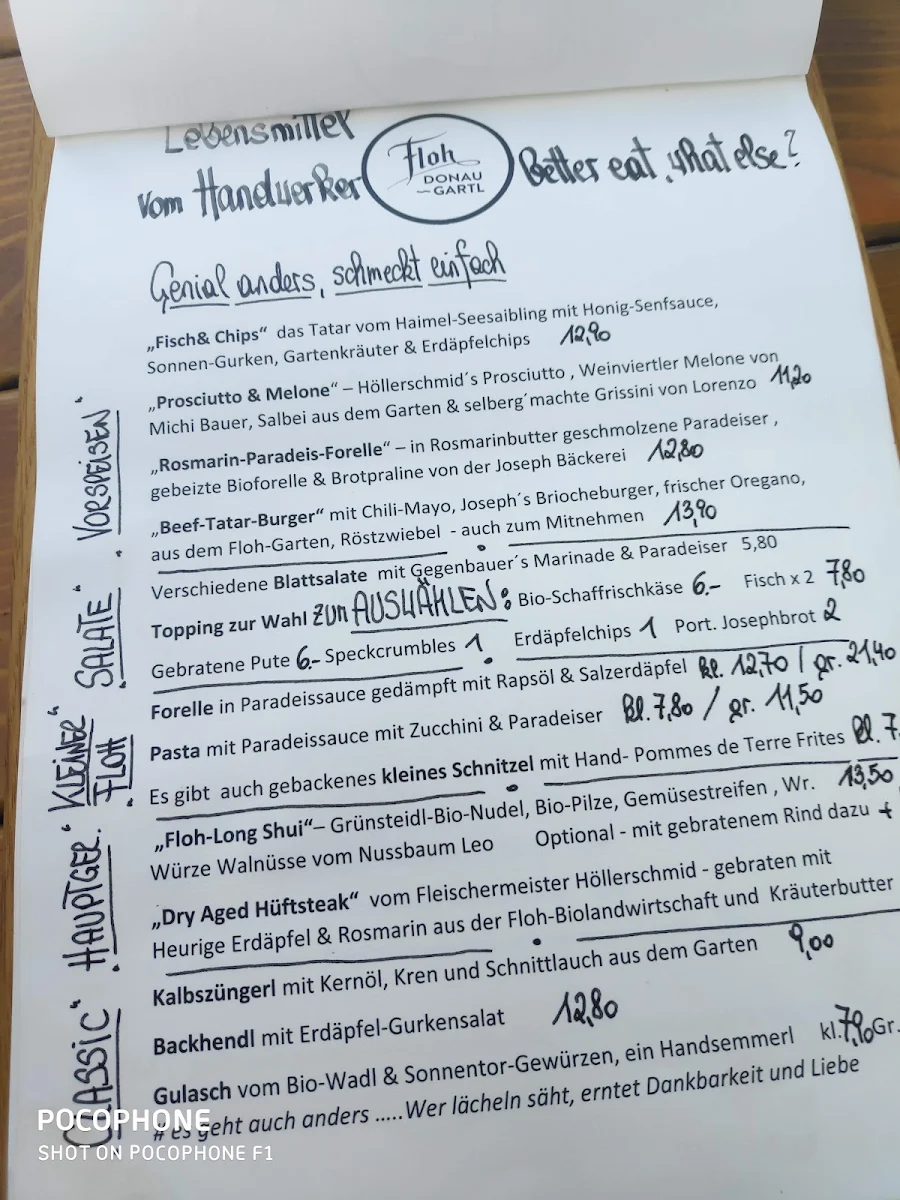 Lebensmittel
vom Handwerker
Floh
DONAU
GARTL
Better eat, what else?
Genial anders, schmeckt einfach
„VORSPEISEN"
„Fisch& Chips“ das Tatar vom Haimel-Seesaibling mit Honig-Senfsauce,
Sonnen-Gurken, Gartenkräuter & Erdäpfelchips 12,90
„Prosciutto & Melone“ – Höllerschmid´s Prosciutto , Weinviertler Melone von
Michi Bauer, Salbei aus dem Garten & selberg´machte Grissini von Lorenzo 11,20
„Rosmarin-Paradeis-Forelle“ – in Rosmarinbutter geschmolzene Paradeiser ,
gebeizte Bioforelle & Brotpraline von der Joseph Bäckerei 12,80
„Beef-Tatar-Burger“ mit Chili-Mayo, Joseph´s Briocheburger, frischer Oregano,
aus dem Floh-Garten, Röstzwiebel - auch zum Mitnehmen 13,90
„SALATE"
Verschiedene Blattsalate mit Gegenbauer´s Marinade & Paradeiser 5,80
Topping zur Wahl zum AUSWÄHLEN: Bio-Schaffrischkäse 6.- Fisch x 2 7,80
Gebratene Pute 6.- Speckcrumbles 1 Erdäpfelchips 1 Port. Josephbrot 2
„KLEINER"
FLOH
Forelle in Paradeissauce gedämpft mit Rapsöl & Salzerdäpfel kl. 12,70 / gr. 21,40
Pasta mit Paradeissauce mit Zucchini & Paradeiser kl. 7,80 / gr. 11,50
Es gibt auch gebackenes kleines Schnitzel mit Hand- Pommes de Terre Frites kl. 7.
„HAUPTGER."
„Floh-Long Shui“– Grünsteidl-Bio-Nudel, Bio-Pilze, Gemüsestreifen , Wr. 13,50
Würze Walnüsse vom Nussbaum Leo Optional - mit gebratenem Rind dazu +
„Dry Aged Hüftsteak“ vom Fleischermeister Höllerschmid - gebraten mit
Heurige Erdäpfel & Rosmarin aus der Floh-Biolandwirtschaft und Kräuterbutter
CLASSIC"
Kalbszüngerl mit Kernöl, Kren und Schnittlauch aus dem Garten 9,00
Backhendl mit Erdäpfel-Gurkensalat 12,80
Gulasch vom Bio-Wadl & Sonnentor-Gewürzen, ein Handsemmerl kl. 7,90 Gr.
# es geht auch anders .....Wer lächeln säht, erntet Dankbarkeit und Liebe
POCOPHONE
SHOT ON POCOPHONE F1